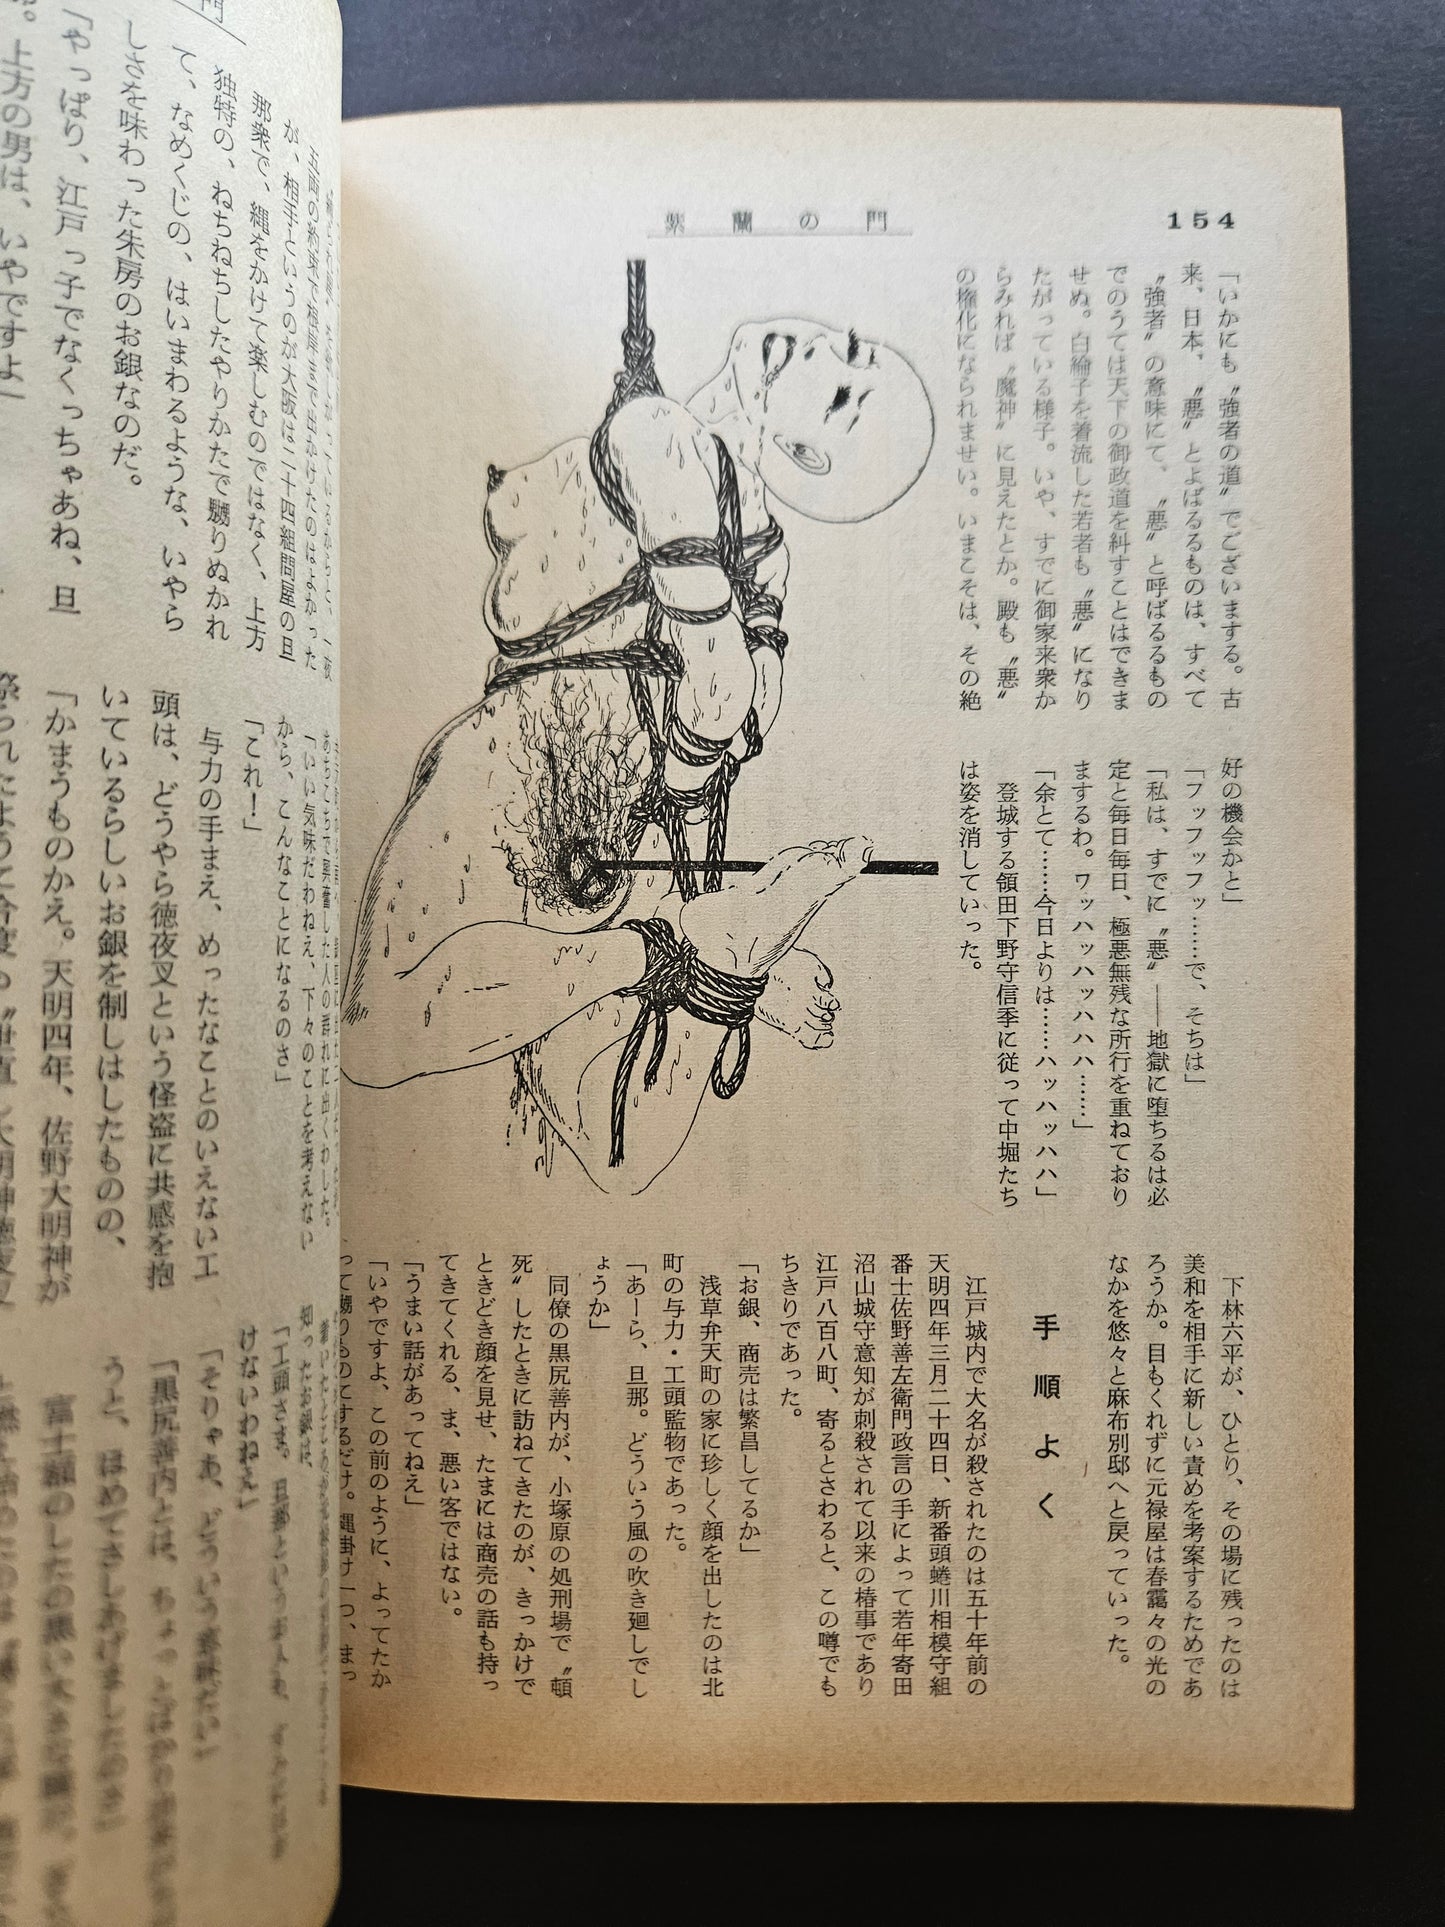 154
紫蘭の門
「いかにも〝強者の道〟でございまする。古
来、日本、〝悪〟とよばるるものは、すべて
〝強者〟の意味にて、〝悪〟と呼ばるるもの
でのうては天下の御政道を糾すことはできま
せぬ。白綸子を着流した若者も〝悪〟になり
たがっている様子。いや、すでに御家来衆か
らみれば〝魔神〟に見えたとか。殿も〝悪〟
の権化になられませい。いまこそは、その絶
好の機会かと」
「フッフッフッ……で、そちは」
「私は、すでに〝悪〟――地獄に堕ちるは必
定と毎日毎日、極悪無残な所行を重ねており
まするわ。ワッハッハッハッハハハ……」
「余とて………今日よりは……ハッハッハハ」
登城する領田下野守信季に従って中堀たち
は姿を消していった。
下林六平が、ひとり、その場に残ったのは
美和を相手に新しい責めを考案するためであ
ろうか。目もくれずに元禄屋は春靄々の光の
なかを悠々と麻布別邸へと戻っていった。
手順よく
江戸城内で大名が殺されたのは五十年前の
天明四年三月二十四日、新番頭蜷川相模守組
番士佐野善左衛門政言の手によって若年寄田
沼山城守意知が刺殺されて以来の椿事であり
江戸八百八町、寄るとさわると、この噂でも
ちきりであった。
「お銀、商売は繁昌してるか」
浅草弁天町の家に珍しく顔を出したのは北
町の与力・工頭監物であった。
「あーら、旦那。どういう風の吹き廻しでし
ょうか」
同僚の黒尻善内が、小塚原の処刑場で〝頓
死〟したときに訪ねてきたのが、きっかけで
ときどき顔を見せ、たまには商売の話も持っ
てきてくれる、ま、悪い客ではない。
「うまい話があってねえ」
「いやですよ、この前のように、よってたか
って嬲りものにするだけ。縄掛け一つ、まっ
五両の約束で根岸まで出かけたのはよかった
が、相手というのが大阪は二十四組問屋の旦
那衆で、縄をかけて楽しむのではなく、上方
独特の、ねちねちしたやりかたで嬲りぬかれ
て、なめくじの、はいまわるような、いやら
しさを味わった朱房のお銀なのだ。
「やっぱり、江戸っ子でなくっちゃあね、旦
上方の男は、いやですよ」
あちこちで興奮した人の群れに出くわした。
「いい気味だわねえ、下々のことを考えない
から、こんなことになるのさ」
「これ！」
与力の手まえ、めったなことのいえない工
頭は、どうやら徳夜叉という怪盗に共感を抱
いているらしいお銀を制しはしたものの、
「かまうものかえ。天明四年、佐野大明神が
知ったお銀は、
「工頭さま。旦那という
けないわねえ」
「そりゃあ、どういう意味だい」
「黒尻善内とは、ちょっとばかり
うと、ほめてさしあげましたのさ」